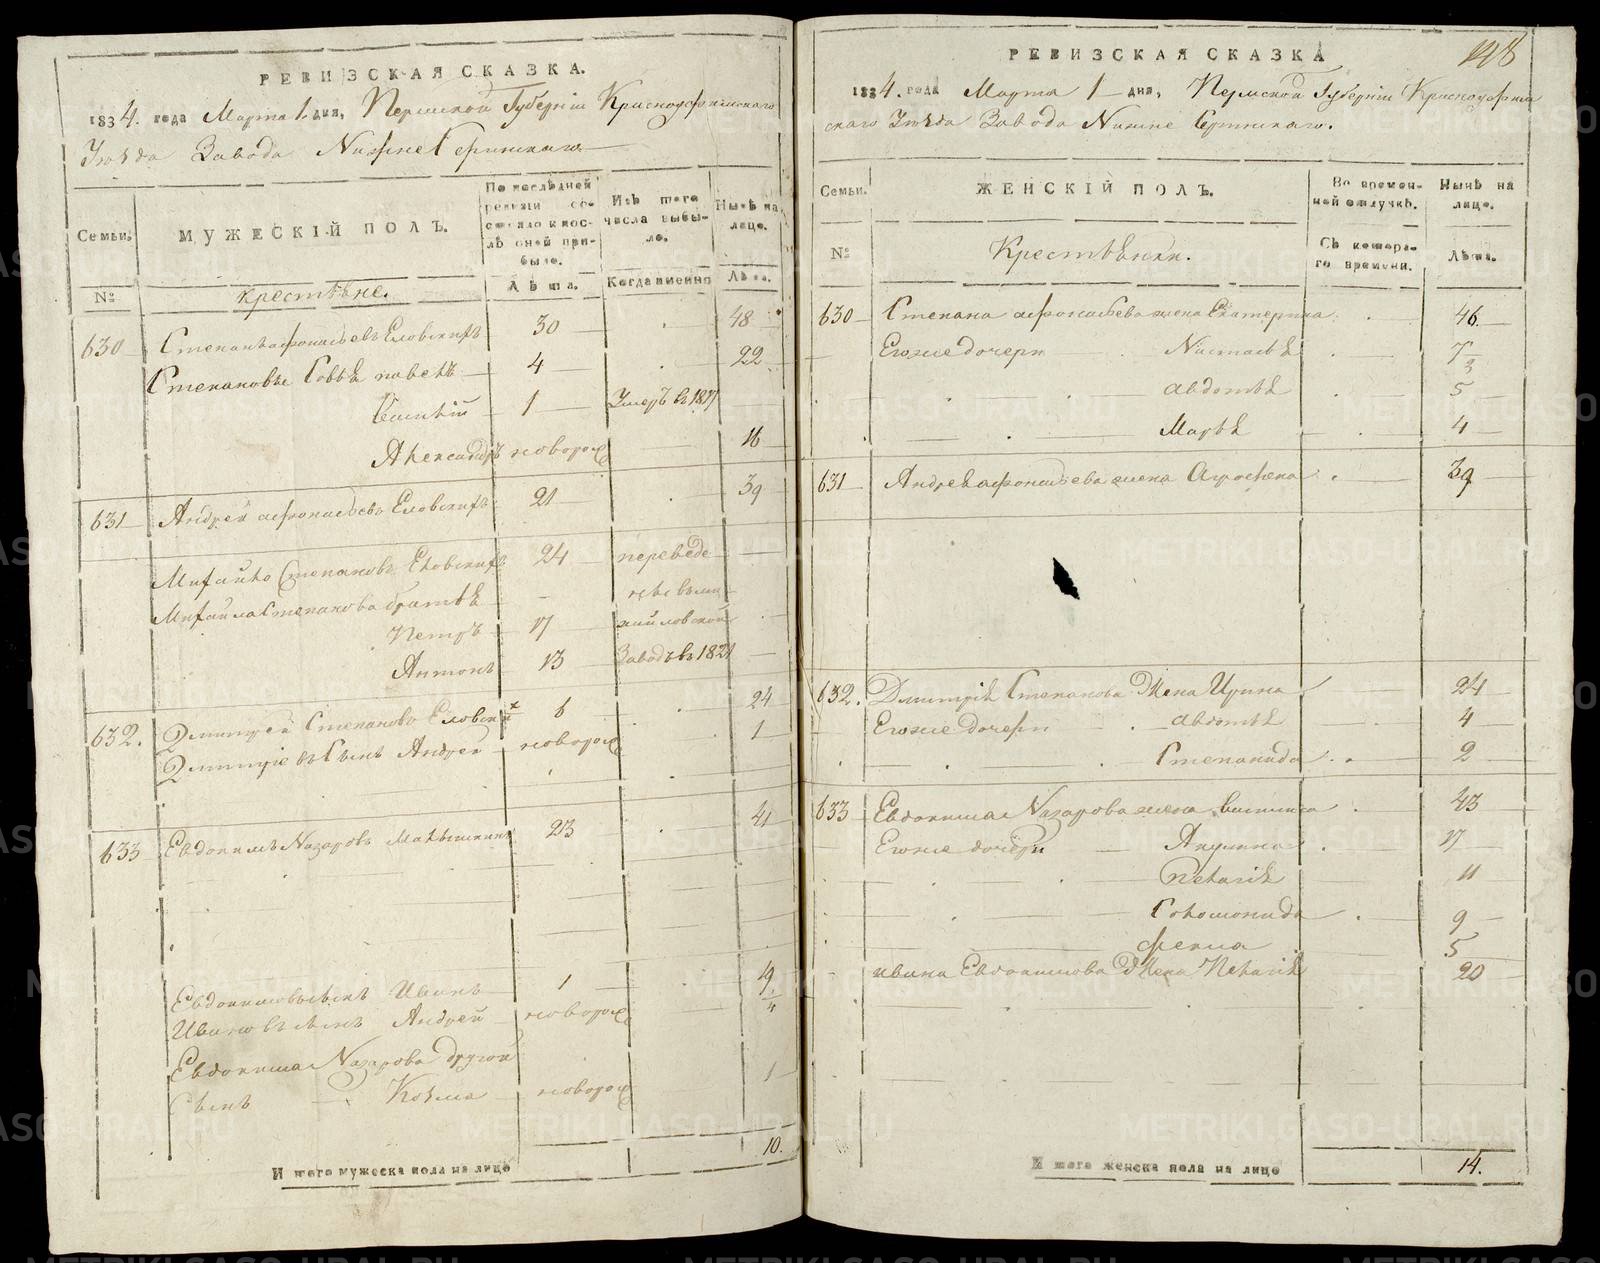 РЕВИЗСКАЯ СКАЗКА.
1834. года Марта 1. дня, Пермской Губерніи Красноуфимскаго
Уѣзда Завода Нижне Сергинскаго
Семьи.
МУЖЕСКІЙ ПОЛЪ.
По послѣдней ревизіи состояло и послѣ оной прибыло.
Изъ того числа выбыло.
Нынѣ на лицо.
№
крестьяне.
Лѣта.
Когда именно
Лѣта.
630 Степанъ афонасьевъ Еловскихъ 30 48
Степановы Совѣ павелъ 4 22
Василій 1 Умеръ въ 1817
Александръ новорож 16
631 Андрей афонасьевъ Еловскихъ 21 39
Михайло Степановъ Еловскихъ 24 переведе
Михайла Степанова братья
Петръ 17
Антонъ 13 Заводъ въ 1821
632. Дмитрей Степановъ Еловских 6 24
Дмитріевъ Сынъ Андрей новорож 1
633 Евдокимъ Назаровъ 23 41
Евдокимовъ сынъ Иванъ 1 19
Ивановъ сынъ Андрей новорож 4
Евдокима Назарова другой
Сынъ Козма новорож 1
10.
И того мужеска пола на лицо
148
РЕВИЗСКАЯ СКАЗКА
1834. года Марта 1 дня, Пермской Губерніи Красноуфим
скаго Уѣзда Завода Нижне Сергинскаго.
Семьи.
ЖЕНСКІЙ ПОЛЪ.
Во временной отлучкѣ.
Нынѣ на лицо.
№
Крестьянки.
Съ котораго времени.
Лѣта.
630 Степана афонасьева жена Екатерина 46.
Егоже дочери Настасья 7
авдотья 5
Марья 4
631 Андрея афонасьева жена Аграфена 39
632. Дмитрія Степанова Жена Ирина 24
Егоже дочери авдотья 4
Степанида 2
633 Евдокима Назарова жена Василиса 43
Егоже дочери Акулина 17
Пелагія 11
Соломонида 9
фекла 5
ивана Евдокимова Жена Пелагія 20
И того женска пола на лицо 14.
METRIKI.GASO-URAL.RU